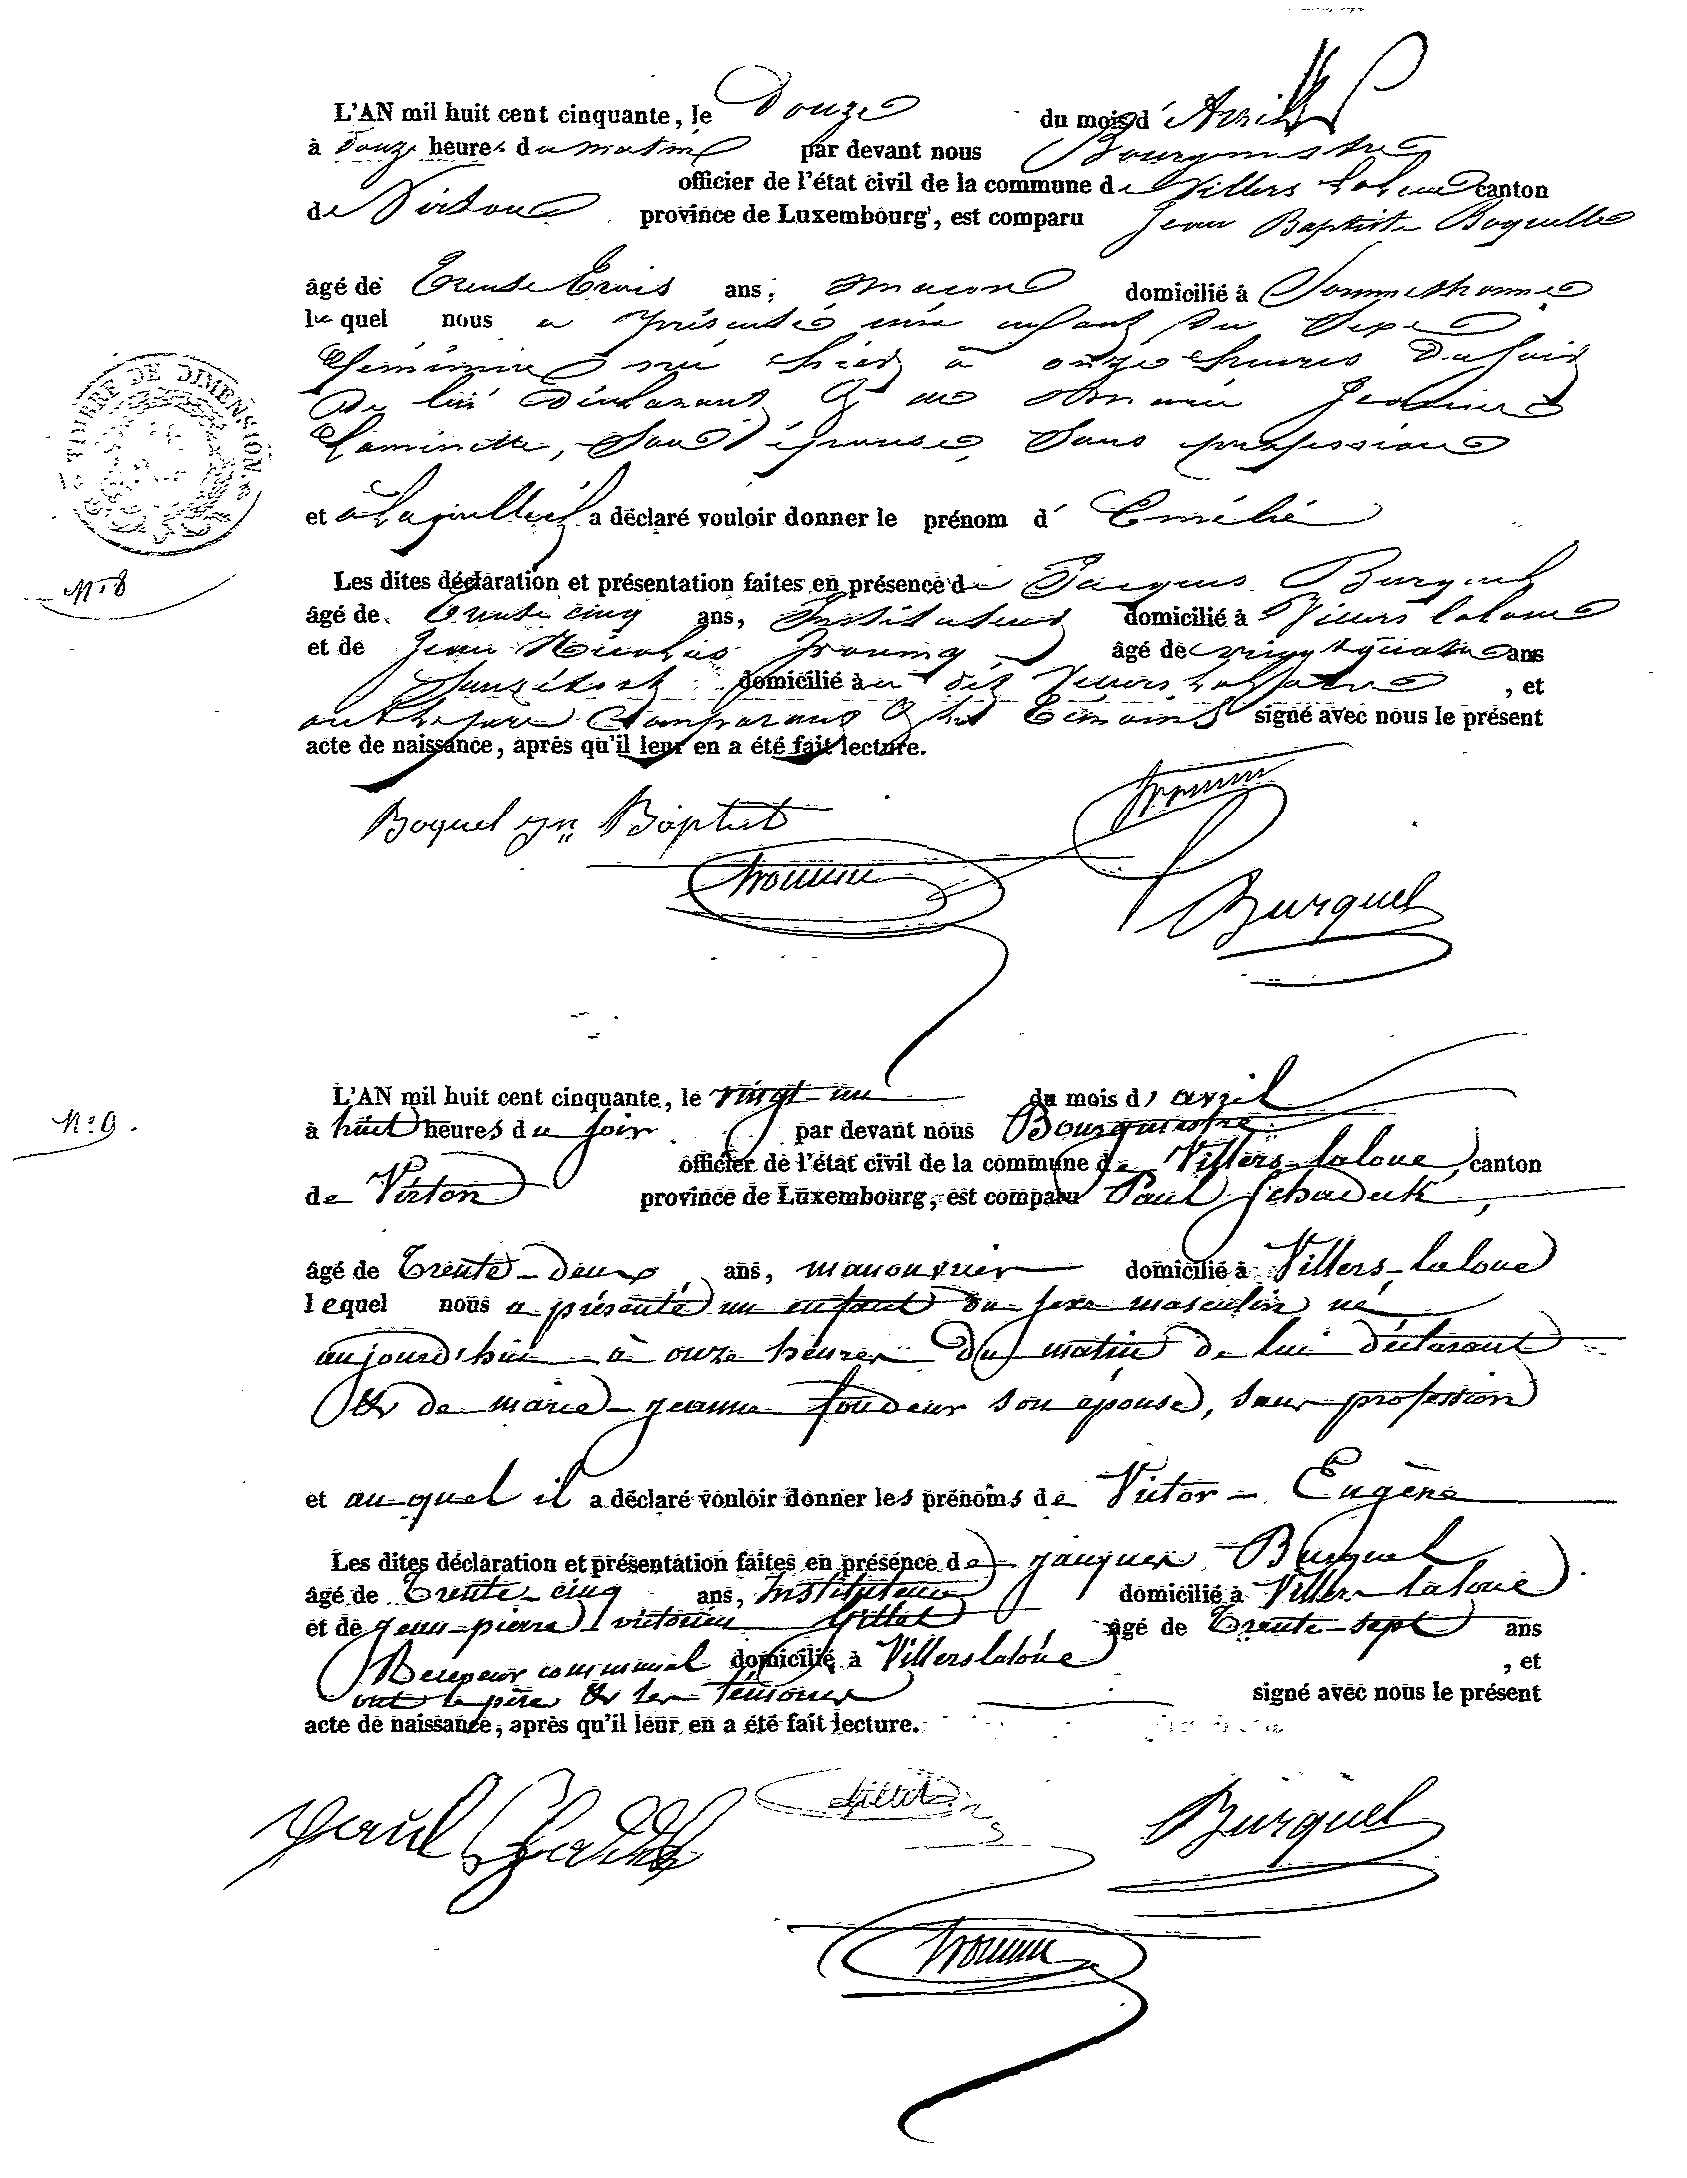 L'AN mil huit cent cinquante, le Douze du mois d' Avril
à Douze heures du matin par devant nous Bourgmestre
officier de l'état civil de la commune de Villers laloue canton
de Virton province de Luxembourg, est comparu Jean Baptiste Boquelle
âgé de Trente trois ans, macon domicilié à Sommethonne
lequel nous a présenté un enfant du Sexe
féminin né hier à onze heures du soir
De lui Déclarant & de Jeanne
Laminette, Son épouse, Sans profession
et à laquelle il a déclaré vouloir donner le prénom d' Emélie
TIMBRE DE DIMENSION
N° 8
Les dites déclaration et présentation faites en présence de Jacques Burquel
âgé de Trente cinq ans, Instituteur domicilié à Villers laloue
et de Jean Nicolas âgé de vingt quatre ans
domicilié à dit Villers Laloue, et
ont le père Comparant & les Témoins signé avec nous le présent
acte de naissance, après qu'il leur en a été fait lecture.
Boquel Jn Baptist
Burquel
N° 9.
L'AN mil huit cent cinquante, le vingt un du mois d' avril
à huit heures du soir par devant nous Bourgmestre
officier de l'état civil de la commune de Villers-laloue, canton
de Virton province de Luxembourg, est comparu Paul Schadeck,
âgé de Trente-deux ans, manouvrier domicilié à Villers-laloue
lequel nous a présenté un enfant du sexe masculin né
aujourd'hui à onze heures du matin de lui déclarant
& de marie-jeanne fondeur son épouse, sans profession
et au-quel il a déclaré vouloir donner les prénoms de Victor - Eugène
Les dites déclaration et présentation faites en présence de jacques Burquel
âgé de Trente-cinq ans, Instituteur domicilié à Villers-laloue
et de jean-pierre victorien Gillet âgé de Trente-sept ans
Receveur communal domicilié à Villerslaloüe, et
ont le père & les Témoins signé avec nous le présent
acte de naissance, après qu'il leur en a été fait lecture.
Paul
Gillet
Burquel